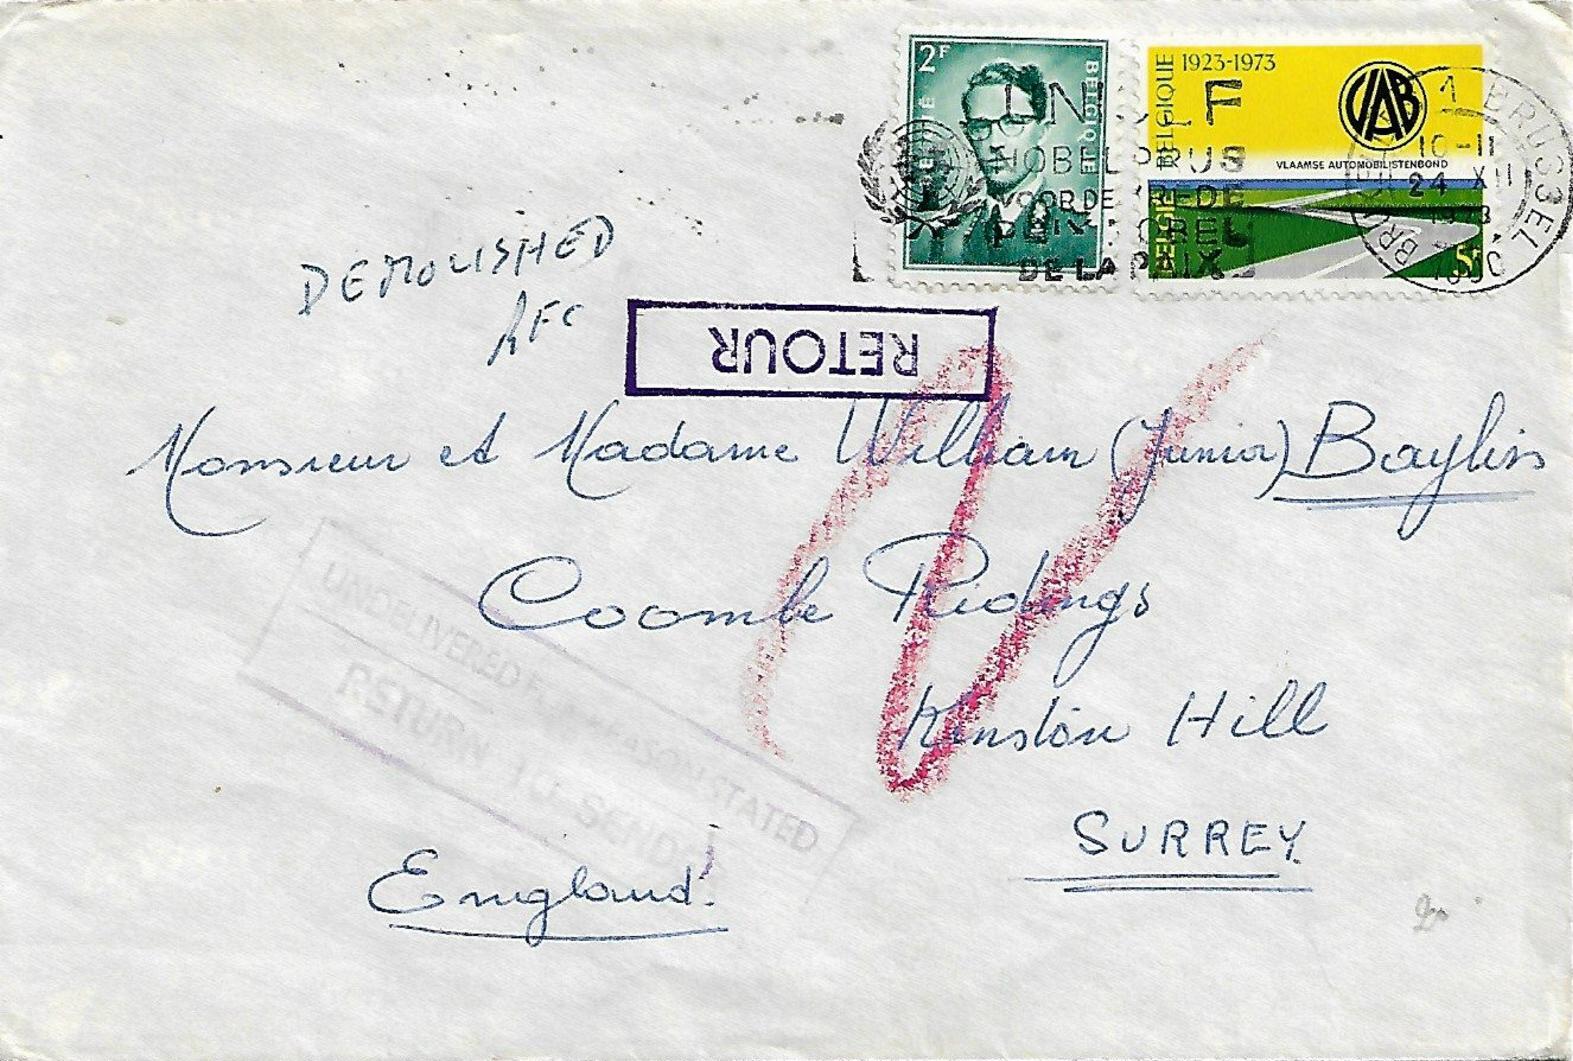 2F
BELGIQUE
1923-1973
BELGIQUE
VAB
VLAAMSE AUTOMOBILISTENBOND
BELGIË
5F
NOBELPRIJS
VOOR DE VREDE
PRIX NOBEL
DE LA PAIX
1 BRUSSEL
10-11
24 XII
1973
DEMOLISHED
RETOUR
Monsieur et Madame William (Junior) Baylis
Coombe Ridings
Kinston Hill
SURREY
England
UNDELIVERED FOR REASON STATED
RETURN TO SENDER